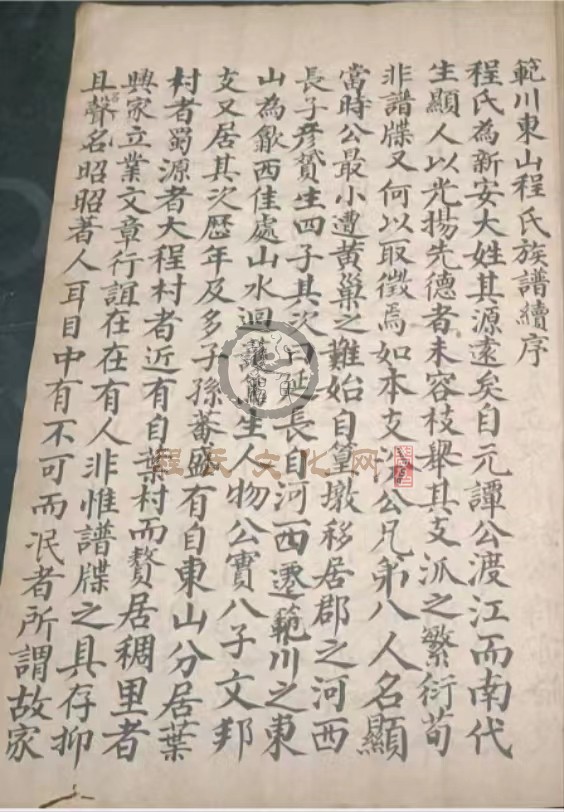 範川東山程氏族譜續序
程氏為新安大姓其源遠矣自元譚公渡江而南代
生顯人以光揚先德者未容枝舉其支派之繁衍苟
非譜牒又何以取徵焉如本支公兄弟八人名顯
當時公最小遭黃巢之難始自篁墩移居郡之河西
長子彥贇生四子其次曰延長自河西遷範川之東
山為歙西佳處山水迴護生人物公實八子文邦
支又居其次歷年及多子孫蕃盛有自東山分居葉
村者蜀源者大程村者近有自葉村而贅居稠里者
興家立業文章行誼在在有人非惟譜牒之具存抑
且聲名昭昭著人耳目中有不可而泯者所謂故家
程氏文化网